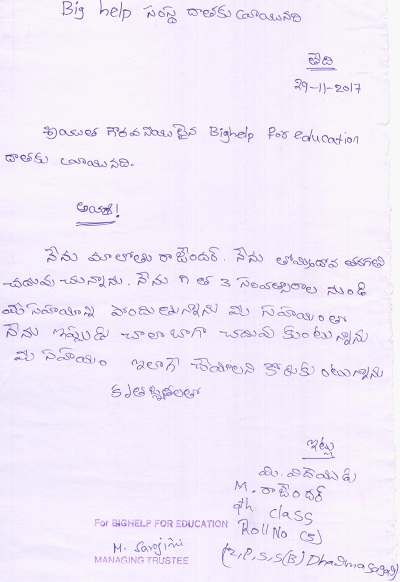 Big help సంస్థ దాతకు వ్రాయునది
తేది
29-11-2017
శ్రీయుత గౌరవనియులైన Bighelp For education
దాతకు వ్రాయునది.
ఆర్యా!
నేను మాలోతు రాజేందర్. నేను తొమ్మిదావ తరగతి
చదువు చున్నాను. నేను గత 3 సంవత్సరాల నుండి
మీ సహాయాన్ని పొందుతున్నాను మీ సహాయంతో
నేను ఇప్పుడు చాలా బాగా చదువు కుంటున్నాను
మీ సహాయం ఇలాగే చేయాలని కోరుకుంటున్నాను
కృతజ్ఞతలతో
ఇట్లు
మీ విదేయుడు
M. రాజేందర్
9th class
Roll No (5)
(Z.P.S.S(B)
For BIGHELP FOR EDUCATION
M. Sarojini
MANAGING TRUSTEE